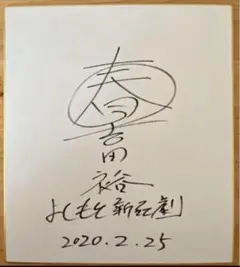 春
吉田
裕
よしもと新喜劇
2020.2.25